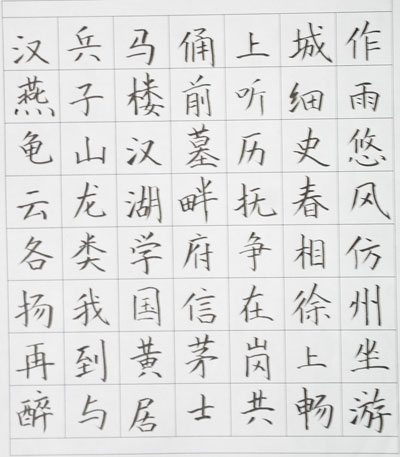 汉兵马俑上城作
燕子楼前听细雨
龟山汉墓历史悠
云龙湖畔抚春风
各类学府争相仿
扬我国信在徐州
再到黄茅岗上坐
醉与居士共畅游